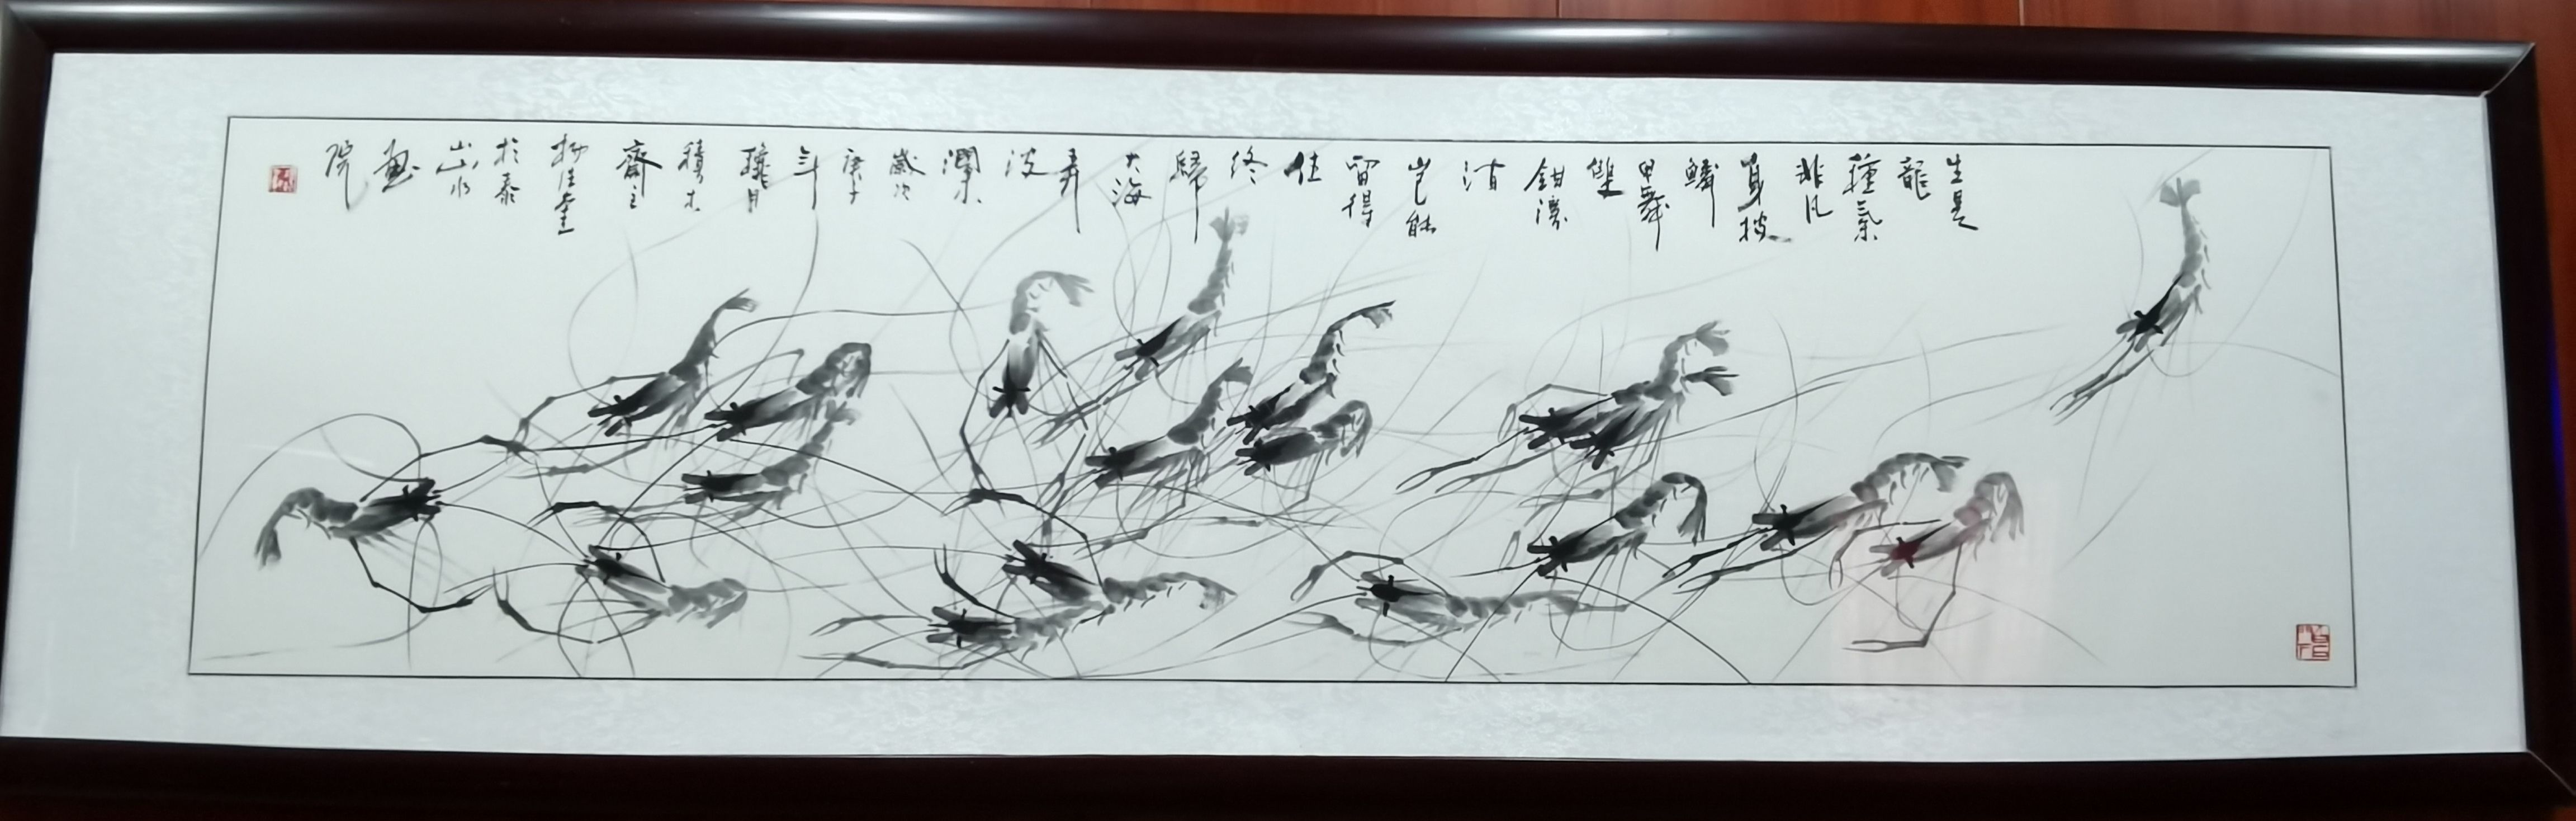 生是
龍
種氣
非凡
身披
鱗
甲舞
雙
鉗溪
豈能
留得
住
終
歸
大海
弄
波
瀾
歲次
庚子
年
臘月
積木
齋主
楊佳奎
於泰
山水
畫
院